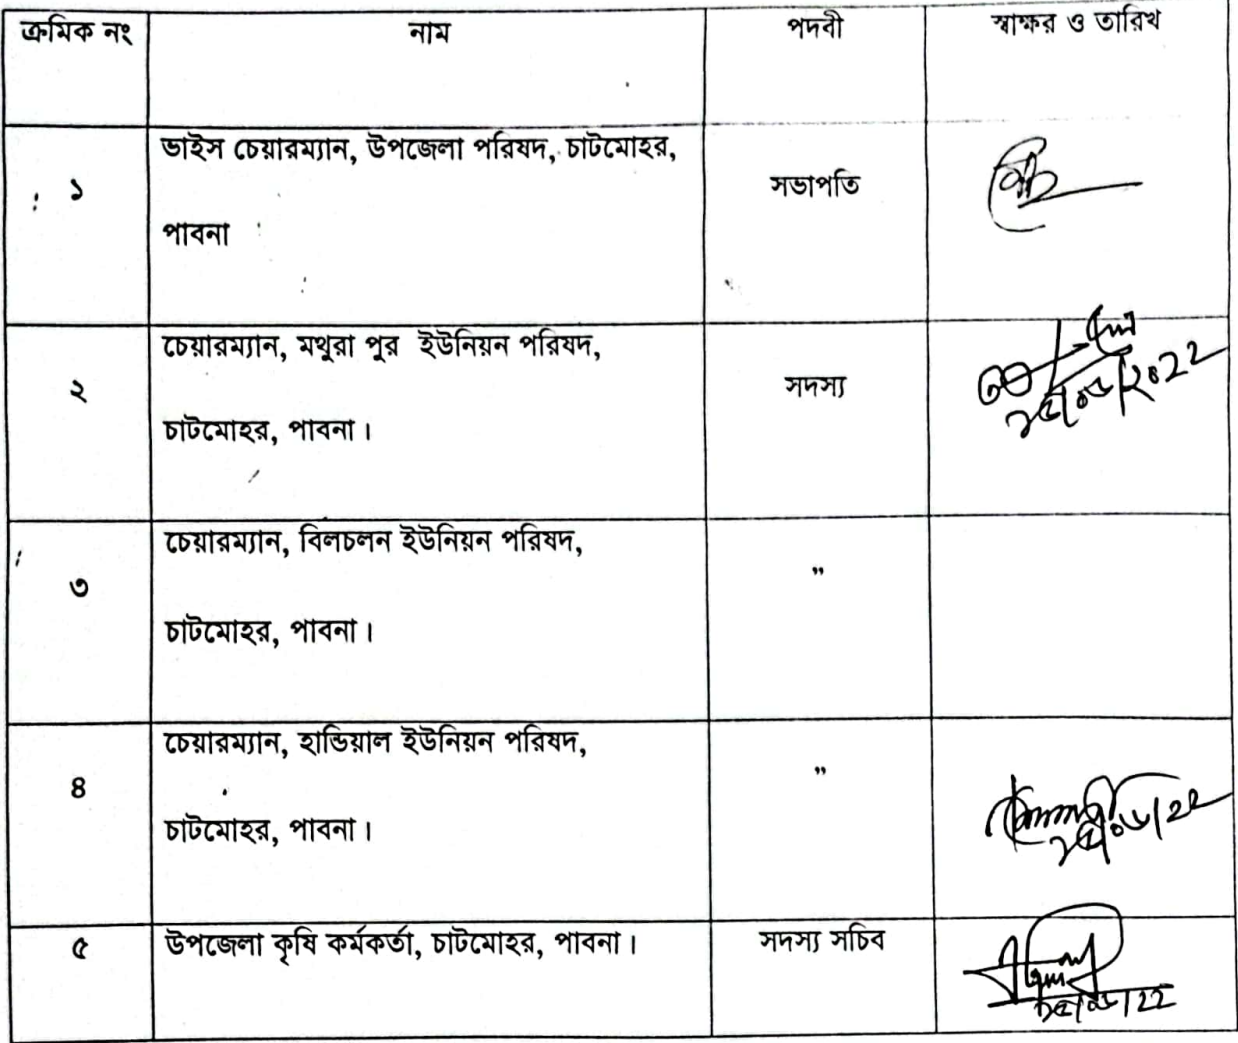 ক্রমিক নং নাম পদবী স্বাক্ষর ও তারিখ
ভাইস চেয়ারম্যান, উপজেলা পরিষদ, চাটমোহর,
১ সভাপতি
পাবনা
চেয়ারম্যান, মথুরা পুর ইউনিয়ন পরিষদ,
২ সদস্য
চাটমোহর, পাবনা।
চেয়ারম্যান, বিলচলন ইউনিয়ন পরিষদ,
৩ ”
চাটমোহর, পাবনা।
চেয়ারম্যান, হান্ডিয়াল ইউনিয়ন পরিষদ,
৪ ”
চাটমোহর, পাবনা।
৫ উপজেলা কৃষি কর্মকর্তা, চাটমোহর, পাবনা। সদস্য সচিব